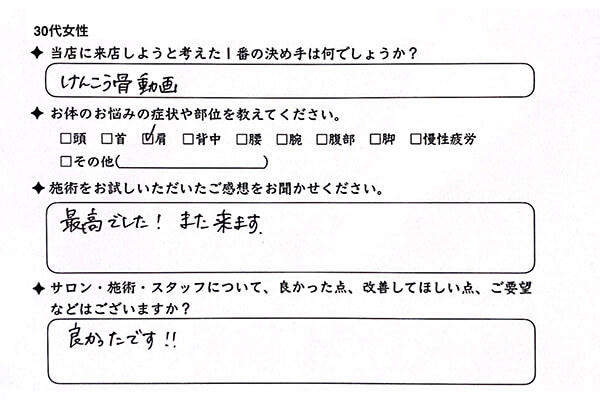 30代女性
✦ 当店に来店しようと考えた1番の決め手は何でしょうか？
けんこう骨動画
✦ お体のお悩みの症状や部位を教えてください。
□頭 □首 ☑肩 □背中 □腰 □腕 □腹部 □脚 □慢性疲労
□その他(　　　　　　　　)
✦ 施術をお試しいただいたご感想をお聞かせください。
最高でした！ また来ます.
✦ サロン・施術・スタッフについて、良かった点、改善してほしい点、ご要望
などはございますか？
良かったです!!